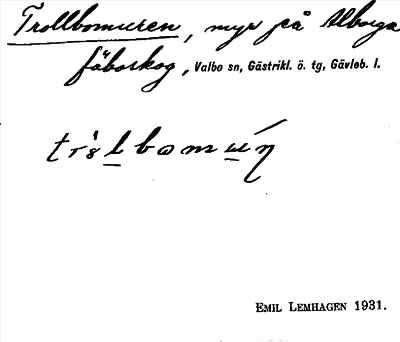 Trollbomuren, myr på Alborga
fäboskog, Valbo sn, Gästrikl. ö. tg, Gävleb. l.
EMIL LEMHAGEN 1931.